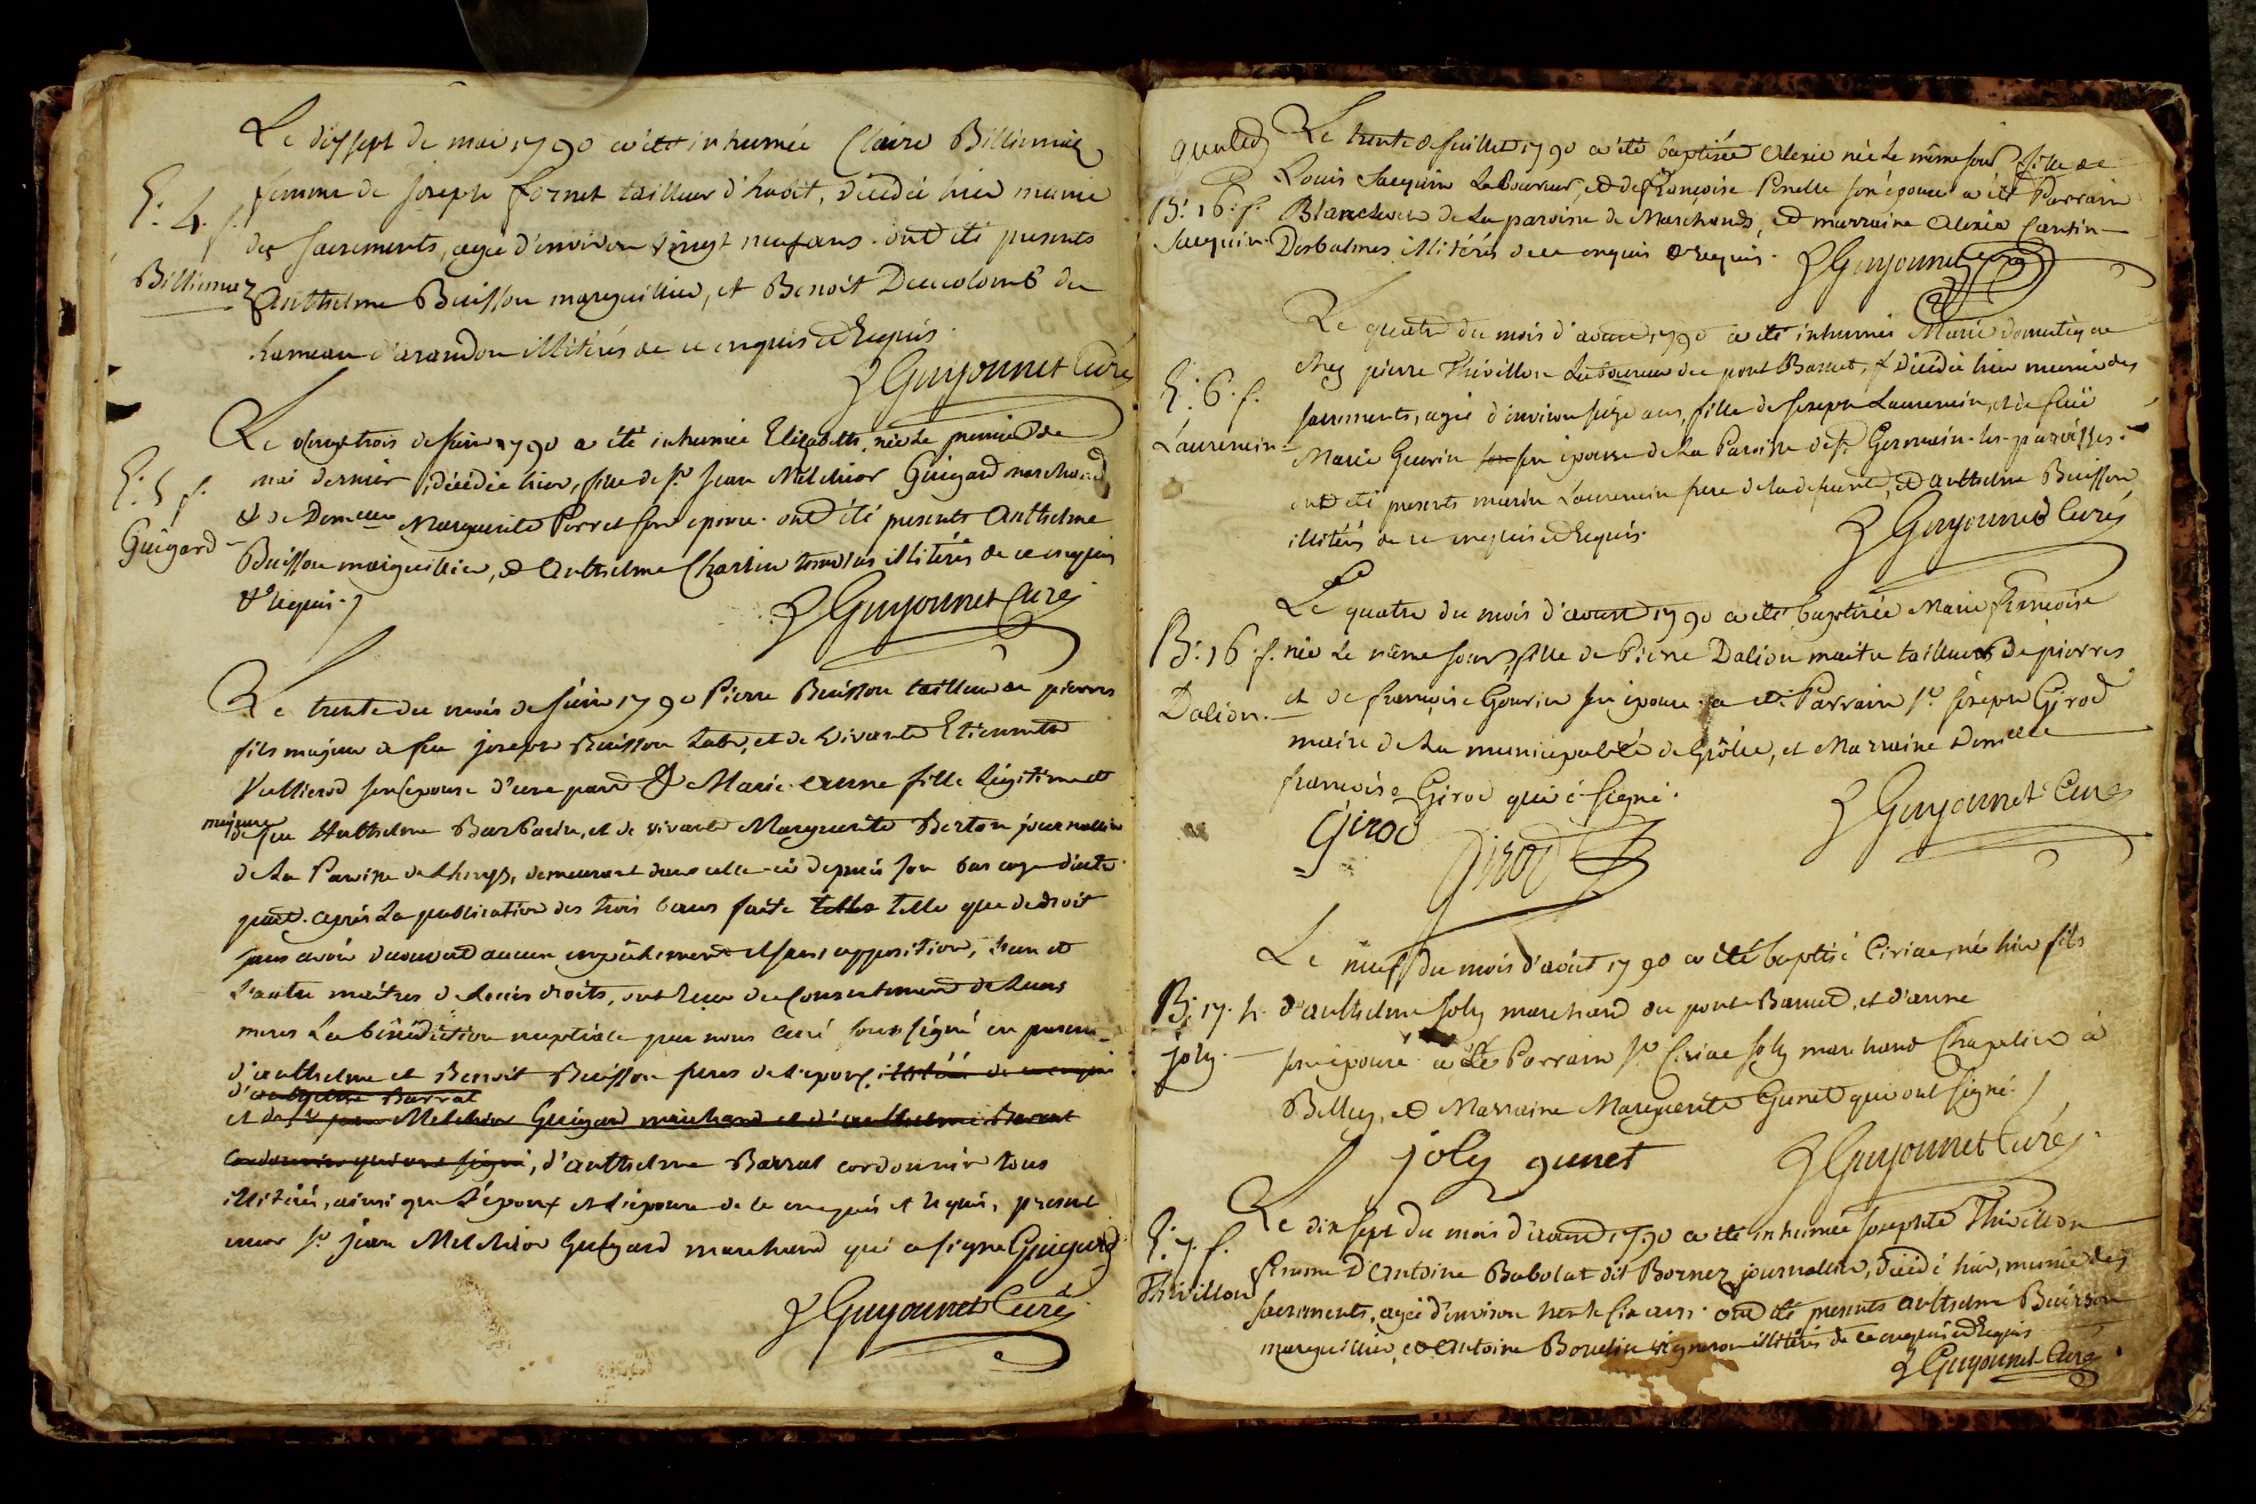 Le dixsept de mai 1790 a été inhumée Claire Billiemaz
femme de joseph fornet tailleur d'habit, décédée hier munie
S: 4. f.
des sacrements, agée d'environ vingt neuf ans. ont été presents
Billiemaz
Anthelme Buisson marguillier, et Benoit Deucolomb du
hameau d'arandon illitérés de ce enquis et Requis.
Guyonnet Curé
Le vingt trois de juin 1790 a été inhumée Elizabeth, née le premier de
S: 5 f.
mai dernier, décédée hier, fille de sr. jean Melchior Guigard marchand
Guigard
et de Demelle Marguerite Perret son epouse. ont été presents Anthelme
Buisson marguillier, et Anthelme Charlin tous les illitérés de ce enquis
et requis.
Guyonnet Curé
Le trente du mois de juin 1790 Pierre Buisson tailleur de pierres
fils majeur de feu joseph Buisson Labr, et de vivante Etiennette
Vullierod son epouse d'une part & Marie-anne fille légitime et
majeure
de feu Anthelme Barbarin, et de vivante Marguerite Berton journalier
de la Paroisse de Lhuys, demeurant dans celle-ci depuis son bas age d'autre
part. après la publication des trois bans faite telle telle que de droit
sans avoir decouvert aucun empêchement et sans opposition, l'un et
l'autre maitres de leurs droits, ont reçu du consentement de leurs
meres La bénédiction nuptiale par nous curé soussigné en presence
d'anthelme et Benoit Buisson freres de l'epoux illitéré de ce enquis
d'anthelme Barrat
et de sr jean Melchior Guigard marchand et d'anthelme Barrat
cordonnier qui ont signé, d'anthelme Barrat cordonnier tous
illitérés, ainsi que l'époux et l'epouse de ce enquis et requis, present
encor sr. jean Melchior Guigard marchand qui a signé Guigard
Guyonnet Curé
gunet
Le trente de juillet 1790 a été baptisée Alexie née le même jour fille de
Louis jacquin Laboureur, et de françoise Penelle son épouse a été Parrain
B: 16. f.
Blanc de la paroisse de Marchands, et marraine Alexie Cantin
jacquin
Desbalmes illitérés de ce enquis & requis. Guyonnet Curé
Le quatre du mois d'aoust 1790 a été inhumée Marie domestique
chez pierre Thivillon Laboureur du pont Barnet, décédée hier munie des
S: 6. f.
sacrements, agée d'environ seize ans, fille de joseph Laurencin, et de feüe
Laurencin
Marie Guerin son son épouse de la Paroisse de st. Germain-les-paroisses.
ont été presents Laurencin frere de la defunte, et anthelme Buisson
illitérés de ce enquis et Requis.
Guyonnet Curé
Le quatre du mois d'aoust 1790 a été baptisée Marie françoise
B: 16. f.
née Le même jour, fille de Pierre Dalion maitre tailleur de pierres
Dalion.
et de françoise Gourin son épouse. a été Parrain sr. joseph Girod
maire de la municipalité de Grôlée, et Marraine Demelle
françoise Girod qui a signé.
Girod
Girod
Guyonnet Curé
Le neuf du mois d'août 1790 a été baptisé Ciriac, né hier fils
B: 17. h.
d'anthelme joly marchand du pont-Barnet, et d'anne
joly.
son épouse a été Parrain sr Ciriac joly marchand Chapelier à
Belley, et Marraine Marguerite Gunet qui ont signé.
joly gunet
Guyonnet Curé
Le dix sept du mois d'aoust 1790 a été inhumée josephte Thivillon
S: 7. f.
femme D'Antoine Babolat dit Bornez journalier, décédée hier, munie des
Thivillon
sacrements, agée d'environ trente six ans. ont été presents anthelme Buisson
marguillier, et Antoine Bourlin vigneron illitérés de ce enquis et Requis
Guyonnet Curé